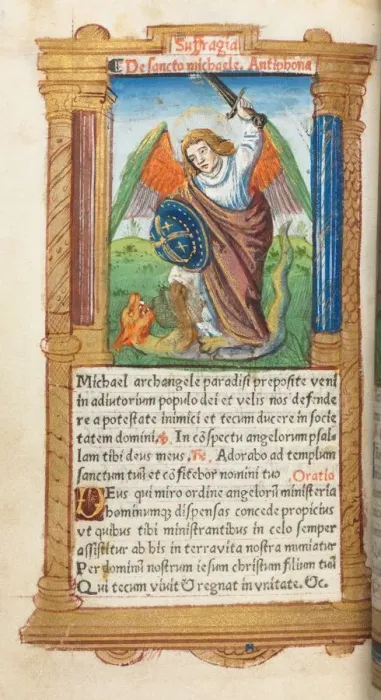 Suffragia
De sancto michaele. Antiphona
Michael archangele paradisi preposite veni
in adiutorium populo dei et velis nos defende
re a potestate inimici et tecum ducere in socie
tatem domini. ℣. In cōspectu angelorum psal
lam tibi deus meus. ℟. Adorabo ad templum
sanctum tuū et cōfitebor nomini tuo .Oratio
DEus qui miro ordine angelorū ministeria
hominumqꝫ dispensas concede propicius
vt quibus tibi ministrantibus in celo semper
assistitur ab his in terra vita nostra muniatur
Per dominū nostrum iesum christum filium tuū
Qui tecum viuit & regnat in vnitate. &c.